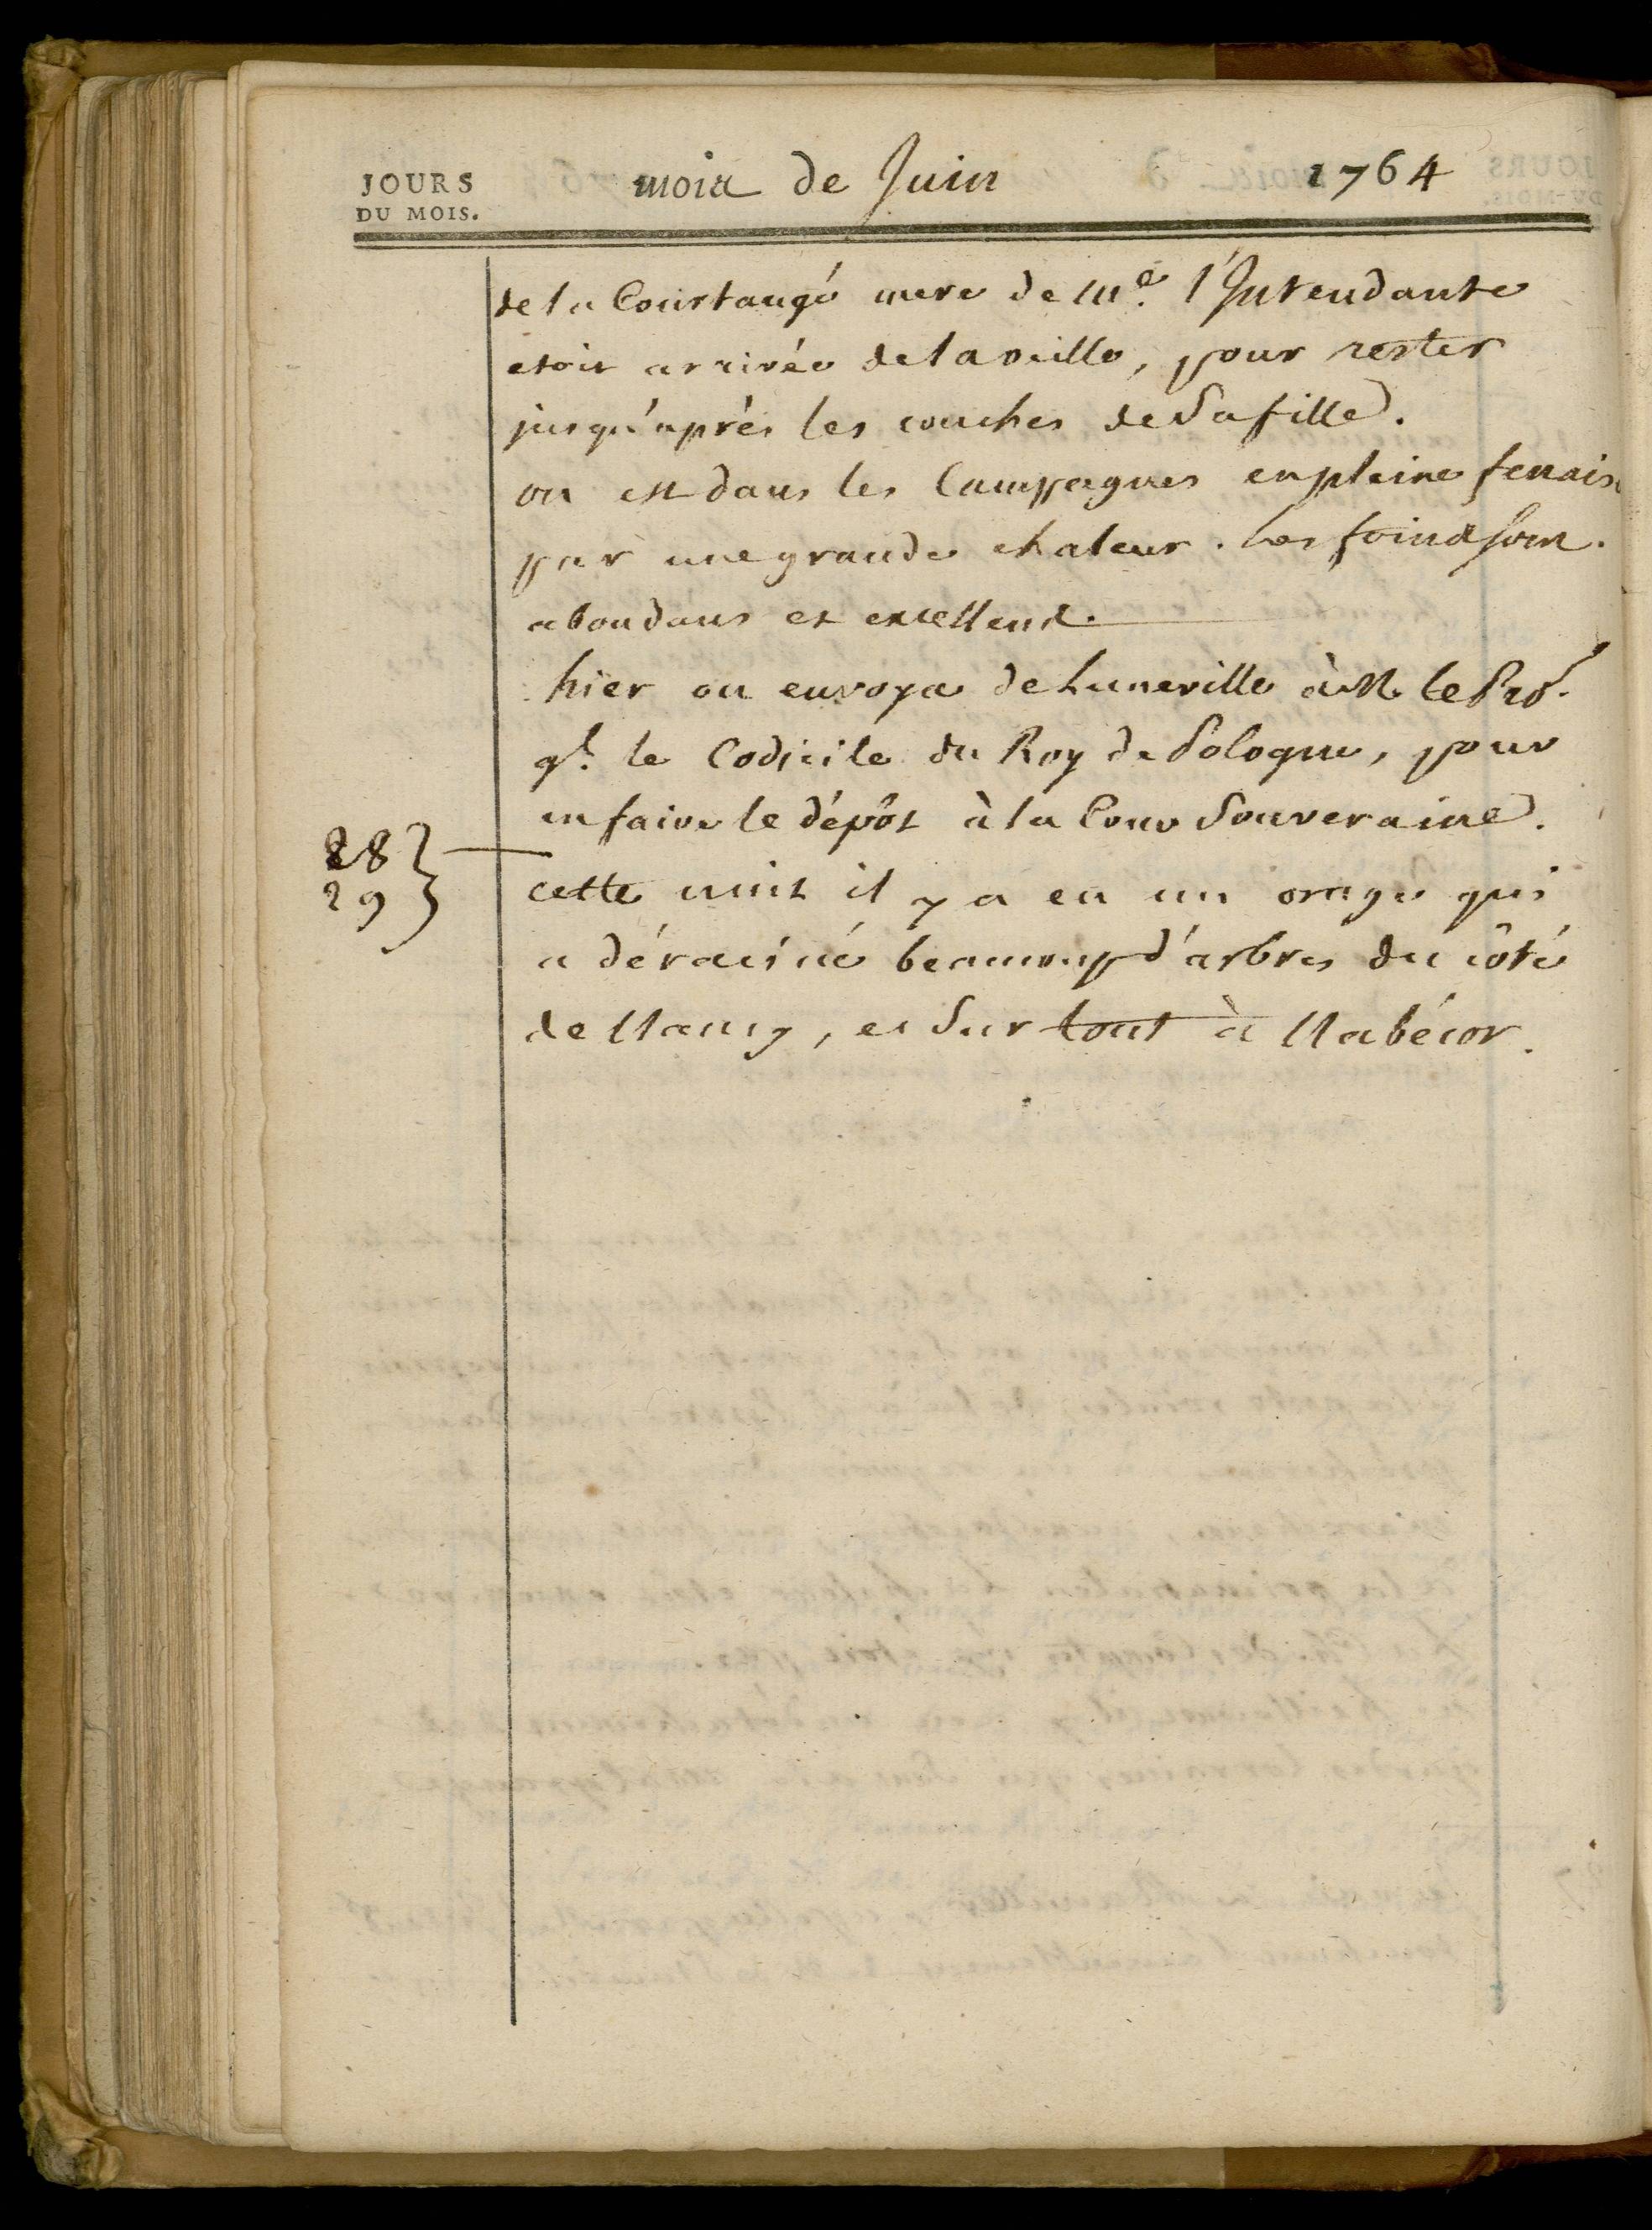 JOURS
DU MOIS.
mois de Juin 1764
de la Courtangé mere de me. l'Intendante
etoit arrivée de la veille, pour rester
jusqu'après les couches de Sa fille.
on est dans les Campagnes en pleine fenais
par une grande chaleur. Les foins sont
abondans et excellens.
hier on envoya de Luneville à M. le Pror.
gl. le Codicile du Roy de Pologne, pour
en faire le dépôt à la Cour Souveraine.
28
29 cette nuit il y a eu un orage qui
a déraciné beaucoup d'arbres du côté
de Nancy, et Sur tout à Nabécor.